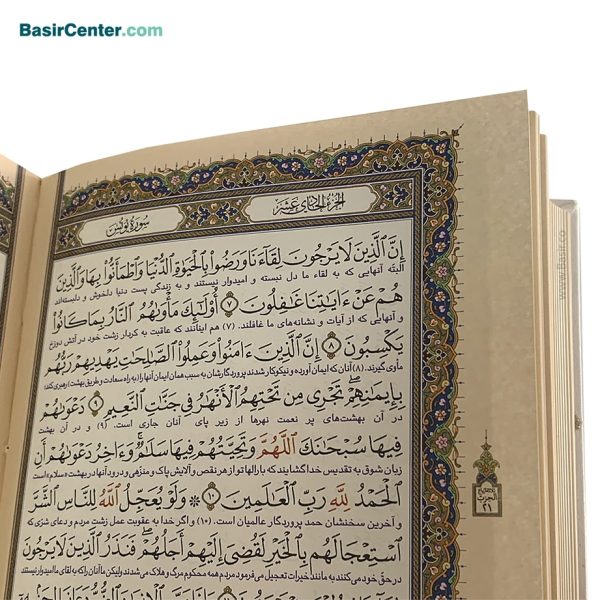 BasirCenter.com
الجزء الحادی عشر
سورة یونس
إِنَّ ٱلَّذِينَ لَا يَرْجُونَ لِقَآءَنَا وَرَضُوا۟ بِٱلْحَيَوٰةِ ٱلدُّنْيَا وَٱطْمَأَنُّوا۟ بِهَا وَٱلَّذِينَ
البته آنهایی که به لقاء ما دل نبسته و امیدوار نیستند و به زندگی پست دنیا دلخوش و دلبسته‌اند
هُمْ عَنْ ءَايَٰتِنَا غَٰفِلُونَ ﴿٧﴾ أُو۟لَٰٓئِكَ مَأْوَىٰهُمُ ٱلنَّارُ بِمَا كَانُوا۟
و آنهایی که از آیات و نشانه‌های ما غافلند. (۷) هم اینانند که عاقبت به کردار زشت خود در آتش دوزخ
يَكْسِبُونَ ﴿٨﴾ إِنَّ ٱلَّذِينَ ءَامَنُوا۟ وَعَمِلُوا۟ ٱلصَّٰلِحَٰتِ يَهْدِيهِمْ رَبُّهُم
مأوی گیرند. (۸) آنان که ایمان آورده و نیکوکار شدند پروردگارشان به سبب همان ایمان آنها را (به راه سعادت و طریق بهشت) رهبری کند؛
بِإِيمَٰنِهِمْ تَجْرِى مِن تَحْتِهِمُ ٱلْأَنْهَٰرُ فِى جَنَّٰتِ ٱلنَّعِيمِ ﴿٩﴾ دَعْوَىٰهُمْ
در آن بهشت‌های پر نعمت نهرها از زیر پای آنان جاری است. (۹) و در آن بهشت
فِيهَا سُبْحَٰنَكَ ٱللَّهُمَّ وَتَحِيَّتُهُمْ فِيهَا سَلَٰمٌ وَءَاخِرُ دَعْوَىٰهُمْ أَنِ
زبان شوق به تقدیس خدا گشایند که بارالها تو از هر نقص و آلایش پاک و منزهی و درود آنها در بهشت «سلام» است
ٱلْحَمْدُ لِلَّهِ رَبِّ ٱلْعَٰلَمِينَ ﴿١٠﴾ وَلَوْ يُعَجِّلُ ٱللَّهُ لِلنَّاسِ ٱلشَّرَّ
و آخرین سخنشان حمد پروردگار عالمیان است. (۱۰) و اگر خدا به عقوبت عمل زشت مردم و دعای شری که
ٱسْتِعْجَالَهُم بِٱلْخَيْرِ لَقُضِىَ إِلَيْهِمْ أَجَلُهُمْ فَنَذَرُ ٱلَّذِينَ لَا يَرْجُونَ
در حق خود می‌کنند به مانند خیرات تعجیل می‌فرمود مردم همه محکوم مرگ و هلاک می‌شدند ولیکن ما آنان را که به لقای ما امیدوار نیستند
الحزب
۲۱
www.Basir.co